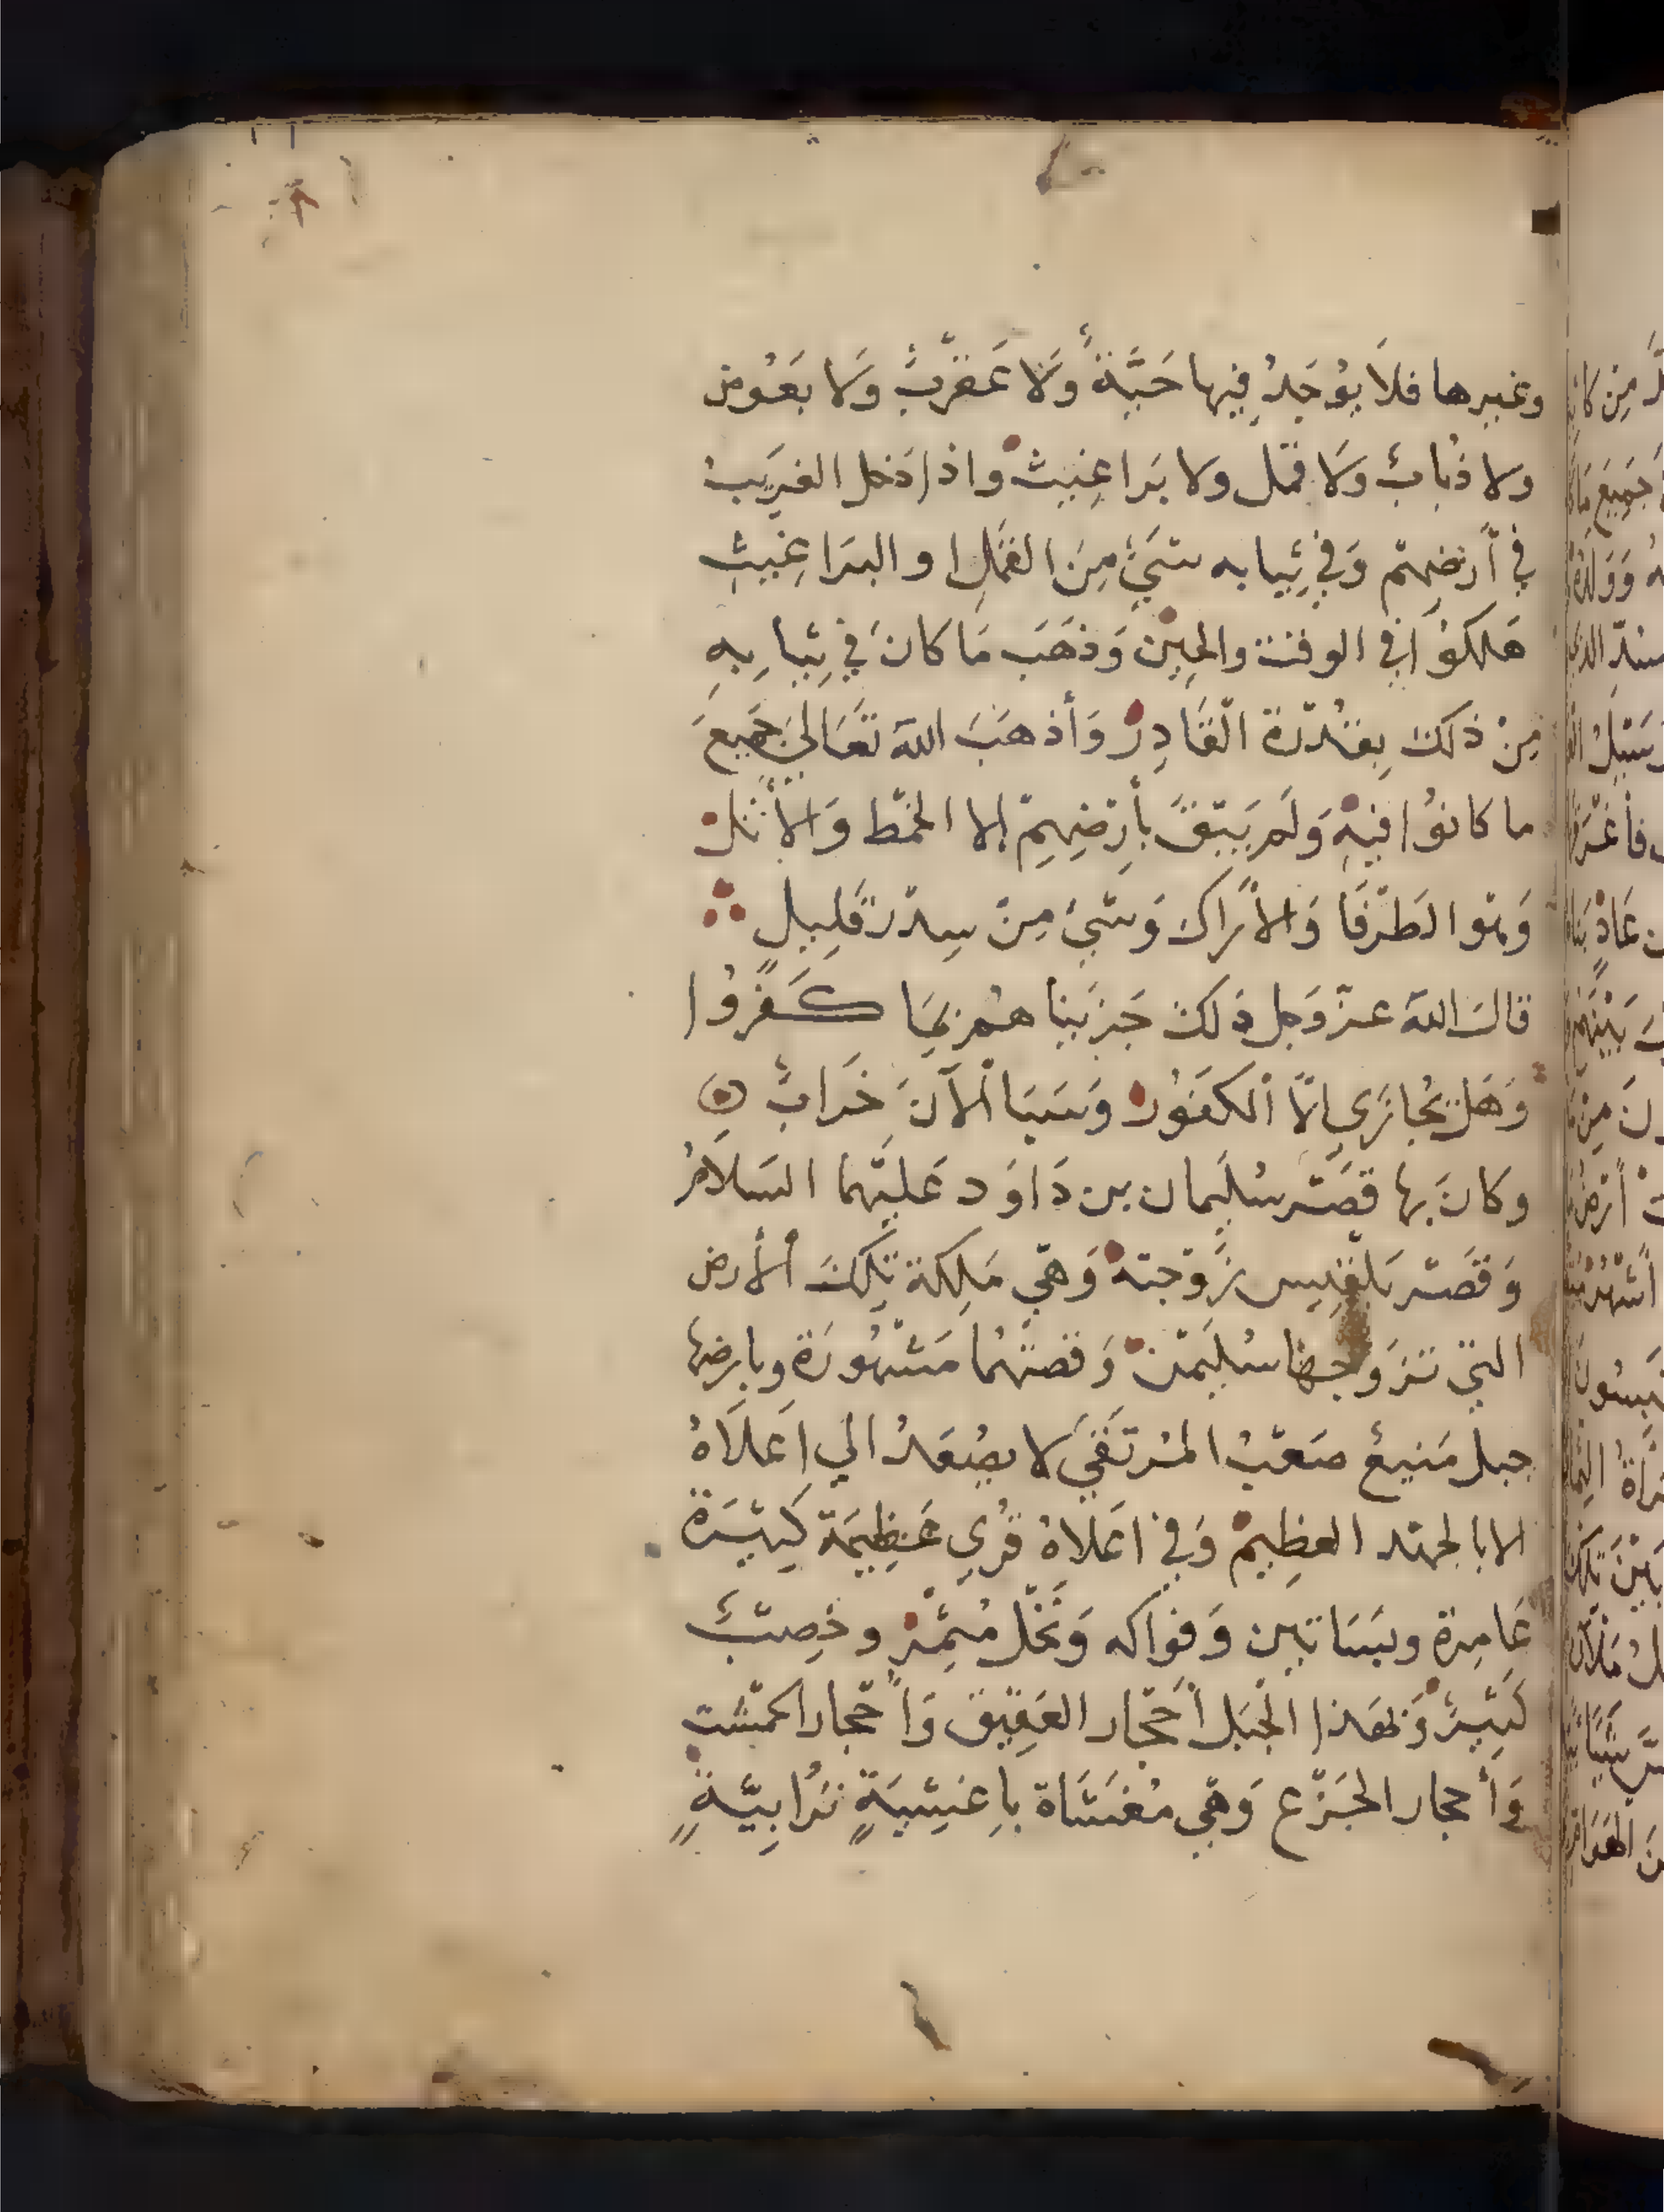 وغيرها فلَا يُوْجَدُ فِيها حَيَّةٌ وَلَا عَقْرَبٌ وَلا بَعُوض
ولا ذُبابٌ وَلَا قمل ولا بَراغِيث واذا دَخل الغرِيبُ
في أرْضِهمْ وَفي ثِيابه شيءٌ مِنَ القَمْلِ او البرَاغِيثِ
هَلَكوُا في الوقت والحِيْن وَذهَبَ مَا كانَ في ثِيابِهِ
مِنْ ذلك بِقُدْرَة القَادِرْ وَأذهَبَ اللهَ تَعَالىَ جَمِيعَ
ما كانوُا فيهِ وَلَمْ يَبْقَ بأرْضِهِمْ إلا الخمْط وَالأثلْ
وَهْو الطَرْفَا وَالأرَاك وَشيْ مِنْ سِدْر قَلِيلٍ
قالَ اللهَ عزّ وَجل ذَلكَ جَزَيْنا هُمْ بمَا كَفَرُوا
وَهَلْ يُجَازَي إلَّا الكَفَوُر وَسَبَا الْآنَ خَرابٌ
وكانَ بِها قصْر سُلَيمان بن دَاوَد عَليْهما السَلاَمُ
وَقصْر بَلقِيس زَوْجته وَهْي مَلِكة تِلكَ الأرض
التي تزَوجها سُليَمن وَقصتهُما مَشْهُورَة وبارضها
جبل مَنيعْ صَعْبُ المُرتَقَي لا يصُعَدُ الي اعلَاهُ
الا بالجهْد العظِيمْ وَفي اعَلاهُ قُرِي عَظِيمَة كَثِيْرَة
عَامِرة وبَسَاتين وَفواكه وَنَخْل مُثمِرْ وخِصْبٌ
كَثِيرٌ وَبهَذا الجَبَل أحْجَار العَقِيْق وَأحْجَار الجمَشت
وَأحجار الجَزْع وَهْي مُغشَاة باِغشِيَةٍ تُرابِيَّةٍ